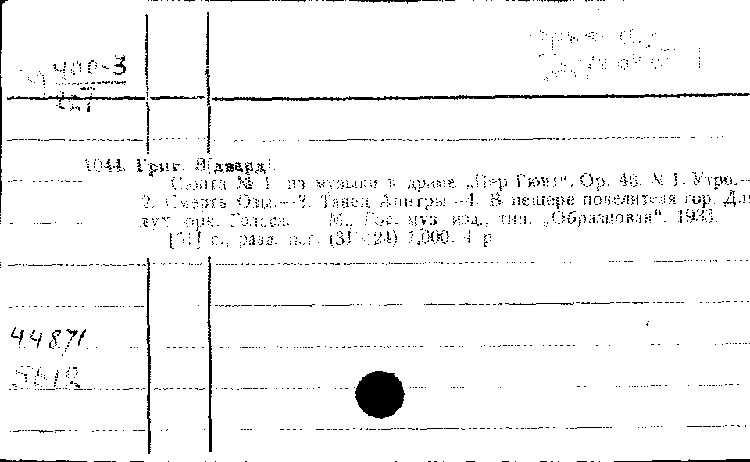 400-3
1044. Григ. Э[двард].
Сюита № 1 из музыки к драме „Пер Гюнт“. Op. 46. № 1. Утро.—
2. Смерть Озы.—3. Танец Анитры.—4. В пещере повелителя гор. Для
дух. орк. Голоса. М., Гос. муз. изд., тип. „Образцовая“. 1933.
[31] с., разд. паг. (31×24) 1,000. 4 р
44871
5612